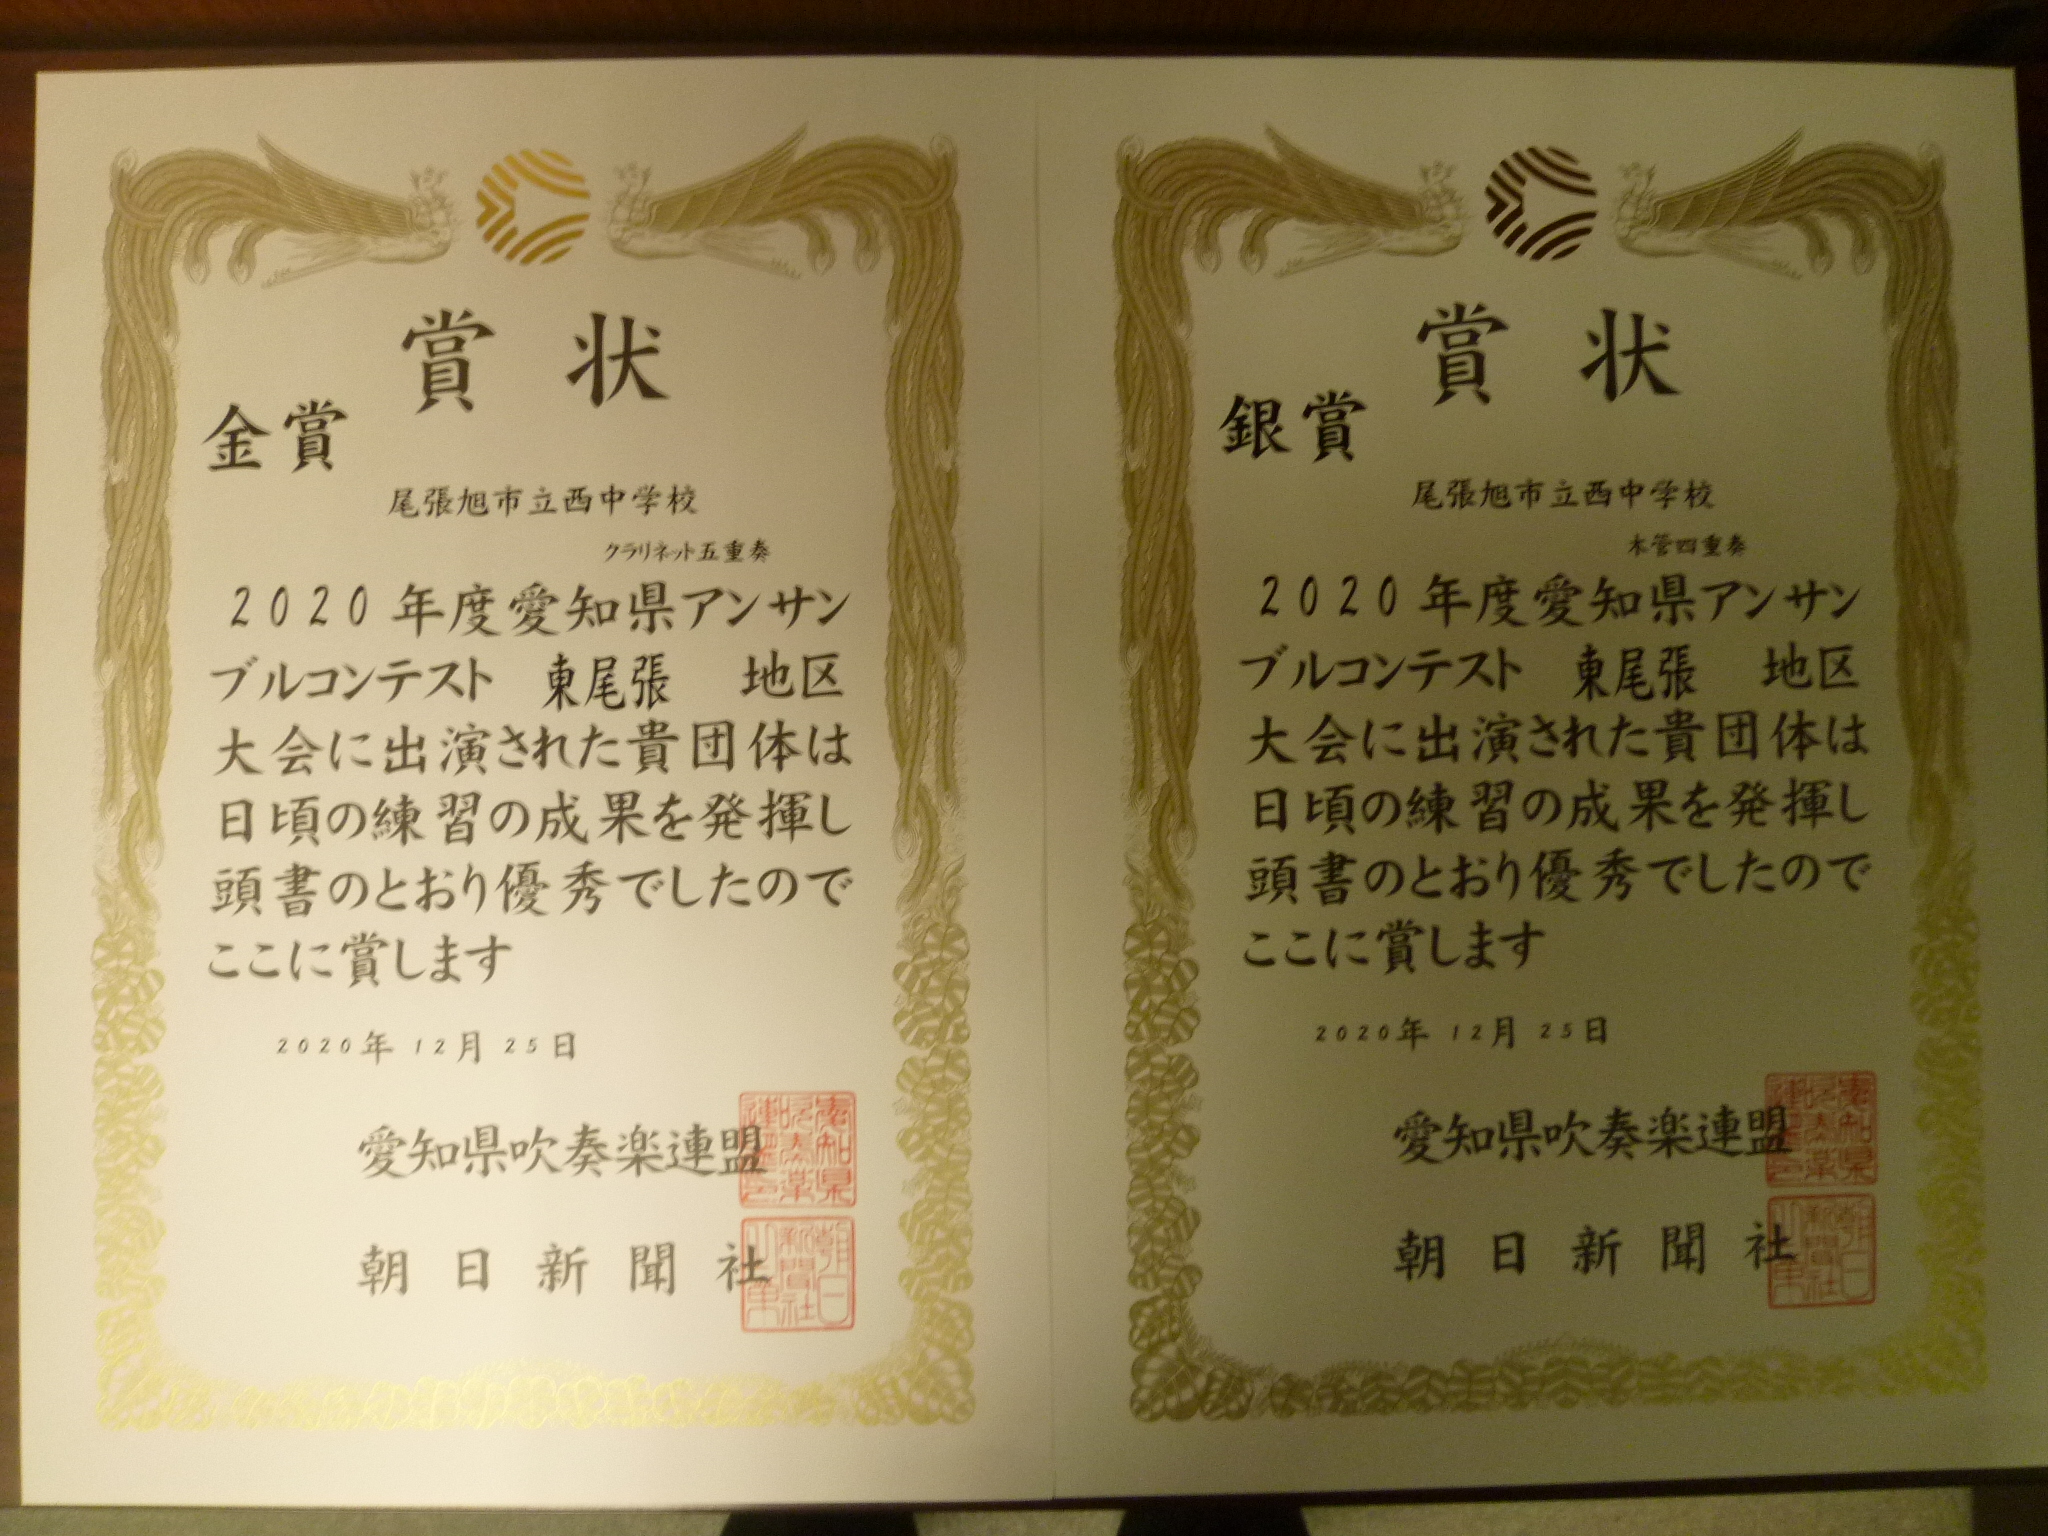 賞状
金賞
尾張旭市立西中学校
クラリネット五重奏
2020年度愛知県アンサン
ブルコンテスト 東尾張 地区
大会に出演された貴団体は
日頃の練習の成果を発揮し
頭書のとおり優秀でしたので
ここに賞します
2020年 12月 25日
愛知県吹奏楽連盟
朝日新聞社
賞状
銀賞
尾張旭市立西中学校
木管四重奏
2020年度愛知県アンサン
ブルコンテスト 東尾張 地区
大会に出演された貴団体は
日頃の練習の成果を発揮し
頭書のとおり優秀でしたので
ここに賞します
2020年 12月 25日
愛知県吹奏楽連盟
朝日新聞社